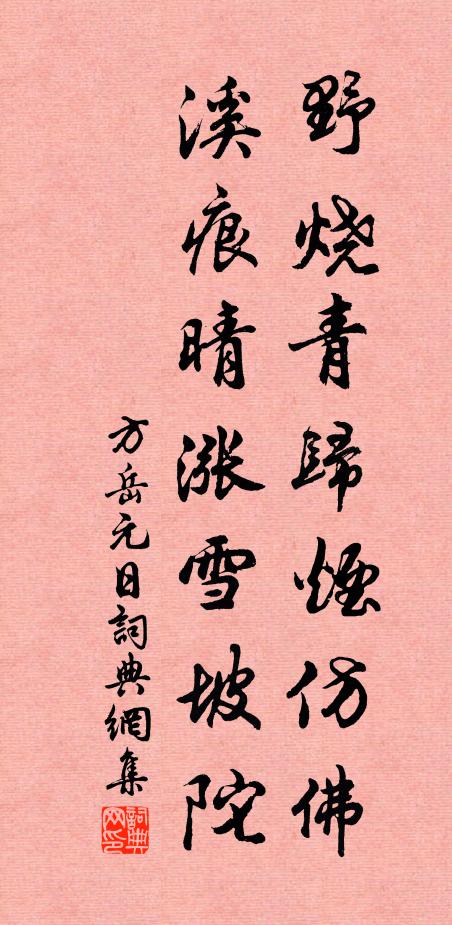 野烧青歸煙仿佛
溪痕晴涨雪坡陀
方岳元日詞典網集
詞典网印